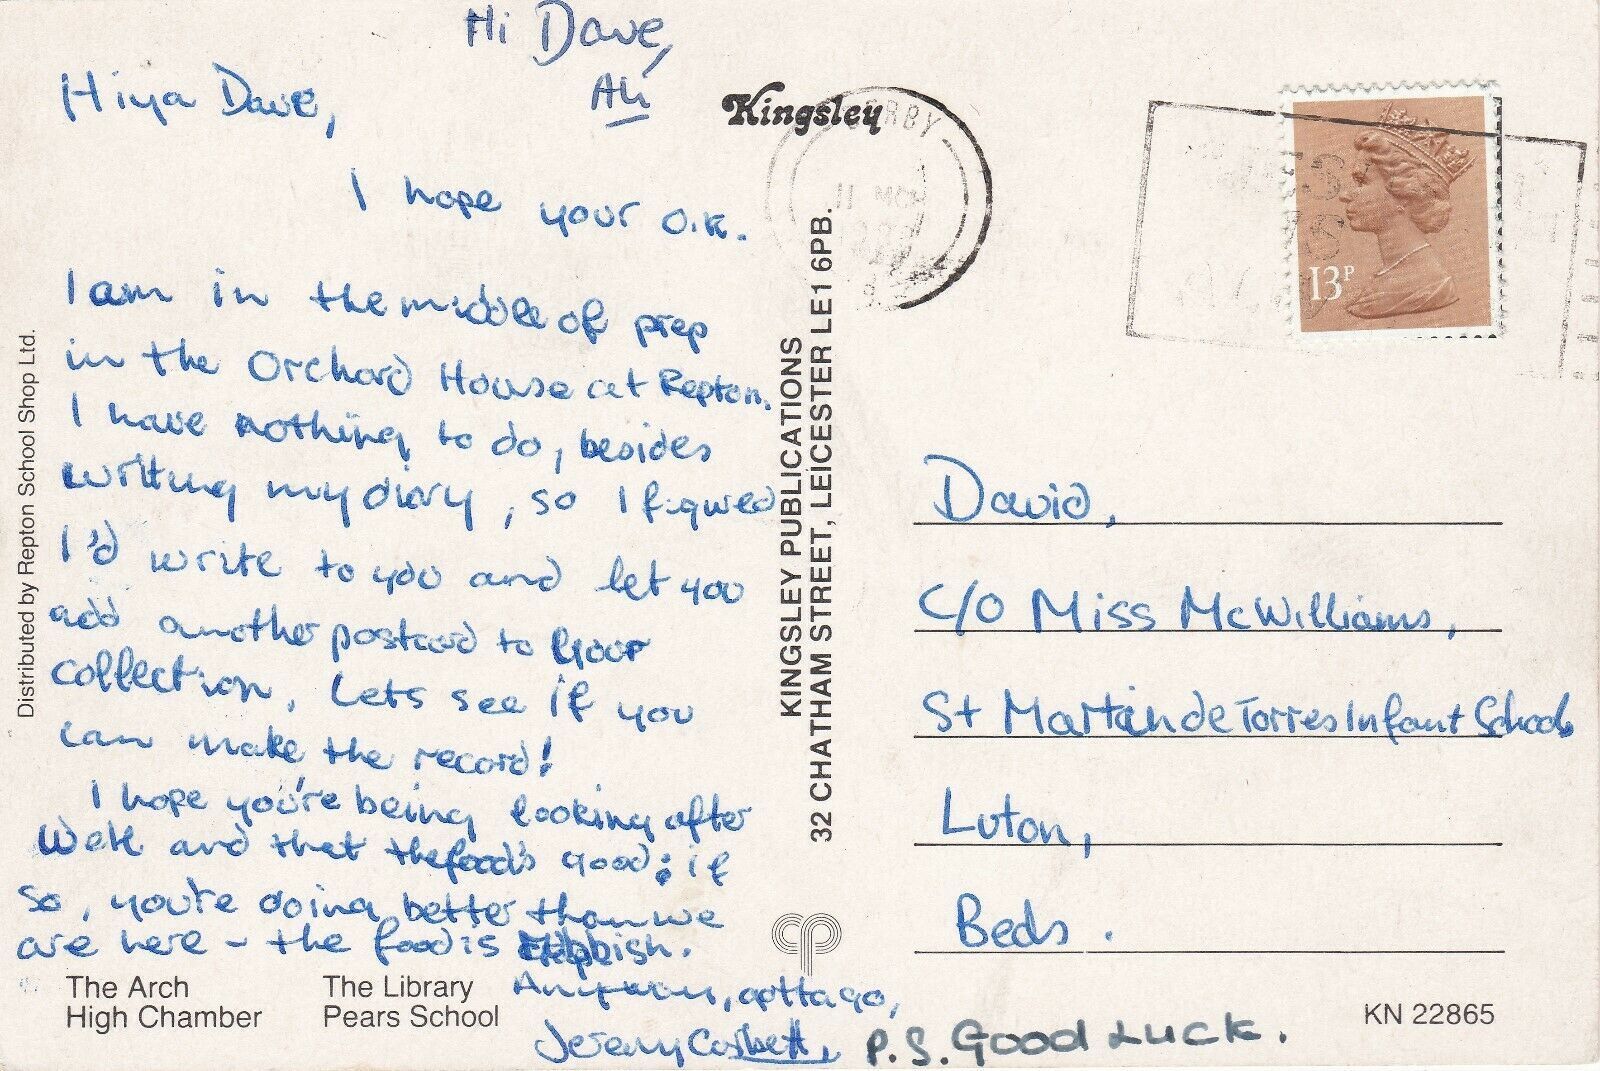 Hi Dave,
Ali
Hiya Dave,
I hope your O.K.
I am in the middle of prep
in the Orchard House at Repton.
I have nothing to do, besides
writing my diary, so I figured
I'd write to you and let you
add another postcard to your
collection. Lets see if you
can make the record!
I hope you're being looking after
well and that the food's good: if
so, you're doing better than we
are here - the food is rubbish.
Anyway, gotta go,
Jeremy Corbett,
P.S. Good Luck.
Distributed by Repton School Shop Ltd.
The Arch
High Chamber
The Library
Pears School
Kingsley
KINGSLEY PUBLICATIONS
32 CHATHAM STREET, LEICESTER LE1 6PB.
DERBY
11 NOV
13P
David,
C/O Miss McWilliams,
St Martin de Torres Infant School
Luton,
Beds.
KN 22865